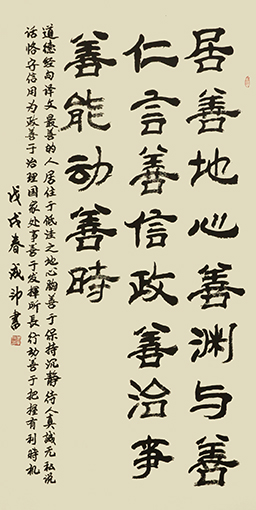 居善地心善渊与善
仁言善信政善治事
善能动善時
道德经句译文最善的人居住于低洼之地心胸善于保持沉静待人真誠无私说
话恪守信用为政善于治理国家处事善于发揮所長行动善于把握有利時机
戊戌春成印書